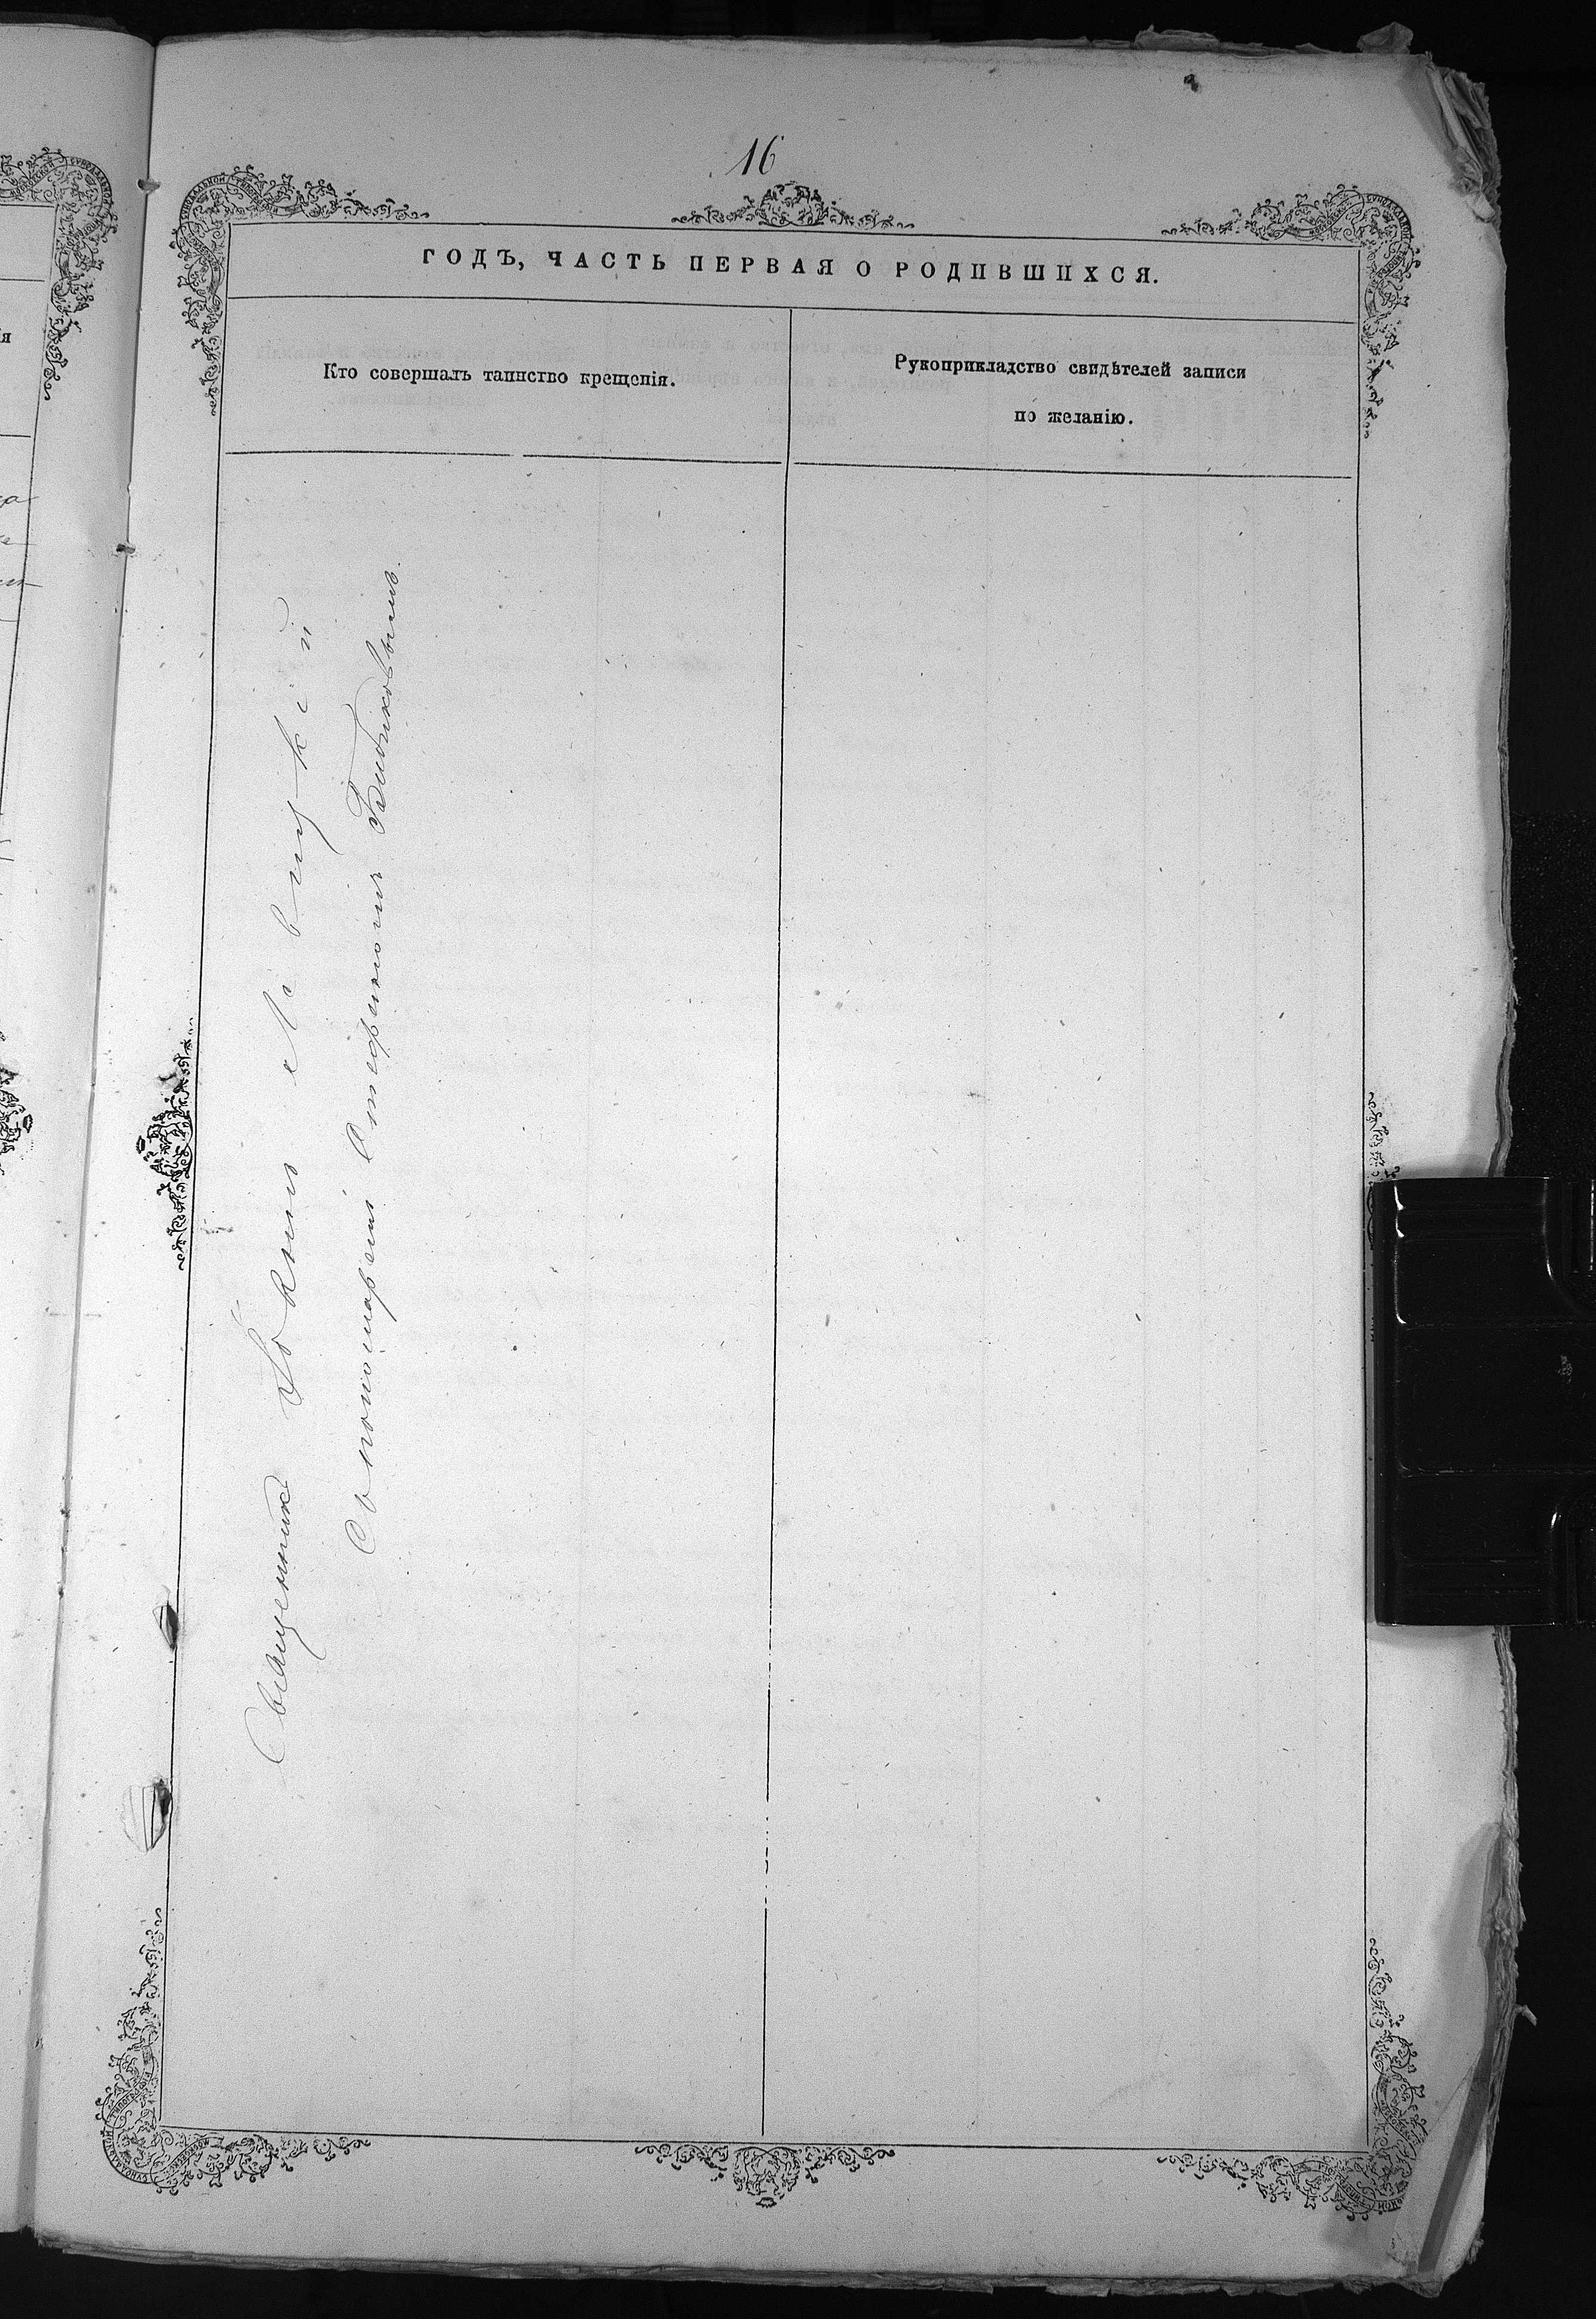 16
ГОДЪ, ЧАСТЬ ПЕРВАЯ О РОДИВШИХСЯ.
Кто совершалъ таинство крещенія.
Рукоприкладство свидѣтелей записи
по желанію.
Священник Іоанн Левицкій
Съ пономаремъ Стефаномъ Бибиковымъ.